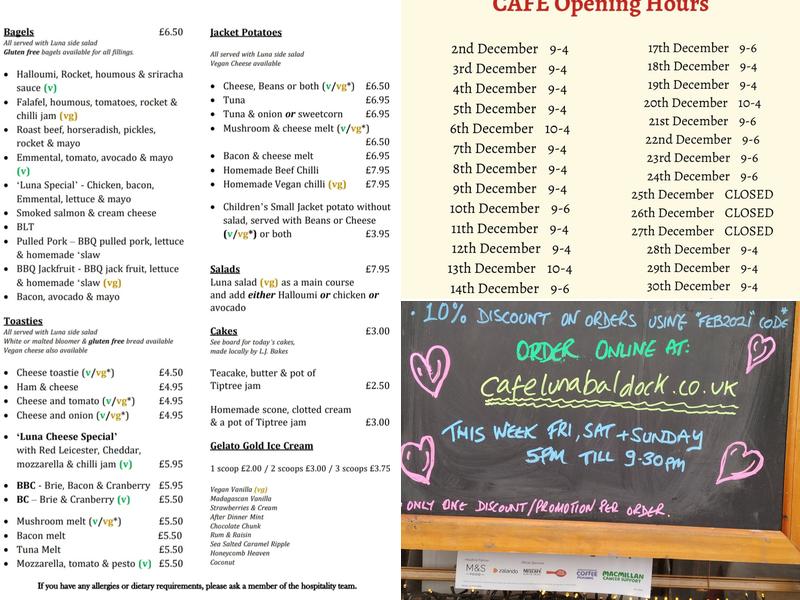 Bagels £6.50
All served with Luna side salad
Gluten free bagels available for all fillings.
• Halloumi, Rocket, houmous & sriracha
sauce (v)
• Falafel, houmous, tomatoes, rocket &
chilli jam (vg)
• Roast beef, horseradish, pickles,
rocket & mayo
• Emmental, tomato, avocado & mayo
(v)
• ‘Luna Special’ - Chicken, bacon,
Emmental, lettuce & mayo
• Smoked salmon & cream cheese
• BLT
• Pulled Pork – BBQ pulled pork, lettuce
& homemade ‘slaw
• BBQ Jackfruit - BBQ jack fruit, lettuce
& homemade ‘slaw (vg)
• Bacon, avocado & mayo
Toasties
All served with Luna side salad
White or malted bloomer & gluten free bread available
Vegan cheese also available
• Cheese toastie (v/vg*) £4.50
• Ham & cheese £4.95
• Cheese and tomato (v/vg*) £4.95
• Cheese and onion (v/vg*) £4.95
• ‘Luna Cheese Special’
with Red Leicester, Cheddar,
mozzarella & chilli jam (v) £5.95
• BBC - Brie, Bacon & Cranberry £5.95
• BC – Brie & Cranberry (v) £5.50
• Mushroom melt (v/vg*) £5.50
• Bacon melt £5.50
• Tuna Melt £5.50
• Mozzarella, tomato & pesto (v) £5.50
Jacket Potatoes
All served with Luna side salad
Vegan Cheese available
• Cheese, Beans or both (v/vg*) £6.50
• Tuna £6.95
• Tuna & onion or sweetcorn £6.95
• Mushroom & cheese melt (v/vg*)
£6.50
• Bacon & cheese melt £6.95
• Homemade Beef Chilli £7.95
• Homemade Vegan chilli (vg) £7.95
• Children’s Small Jacket potato without
salad, served with Beans or Cheese
(v/vg*) or both £3.95
Salads £7.95
Luna salad (vg) as a main course
and add either Halloumi or chicken or
avocado
Cakes £3.00
See board for today's cakes,
made locally by L.J. Bakes
Teacake, butter & pot of
Tiptree jam £2.50
Homemade scone, clotted cream
& a pot of Tiptree jam £3.00
Gelato Gold Ice Cream
1 scoop £2.00 / 2 scoops £3.00 / 3 scoops £3.75
Vegan Vanilla (vg)
Madagascan Vanilla
Strawberries & Cream
After Dinner Mint
Chocolate Chunk
Rum & Raisin
Sea Salted Caramel Ripple
Honeycomb Heaven
Coconut
If you have any allergies or dietary requirements, please ask a member of the hospitality team.
CAFE Opening Hours
2nd December 9-4
3rd December 9-4
4th December 9-4
5th December 9-4
6th December 10-4
7th December 9-4
8th December 9-4
9th December 9-4
10th December 9-6
11th December 9-4
12th December 9-4
13th December 10-4
14th December 9-6
17th December 9-6
18th December 9-4
19th December 9-4
20th December 10-4
21st December 9-6
22nd December 9-6
23rd December 9-6
24th December 9-6
25th December CLOSED
26th December CLOSED
27th December CLOSED
28th December 9-4
29th December 9-4
30th December 9-4
• 10% DISCOUNT ON ORDERS USING "FEB2021" CODE
ORDER ONLINE AT:
cafelunabaldock.co.uk
THIS WEEK FRI, SAT + SUNDAY
5PM TILL 9-30PM
ONLY ONE DISCOUNT/PROMOTION PER ORDER.
M&S
FOOD
zalando
NESCAFÉ
MACMILLAN
CANCER SUPPORT